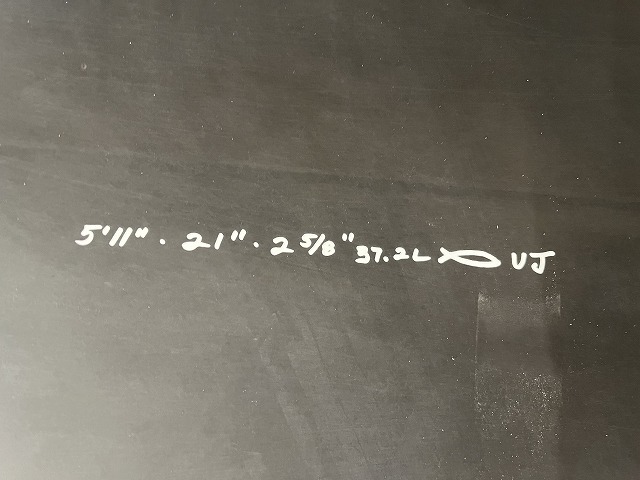 5'11" · 21" · 2 5/8" 37.2L VJ